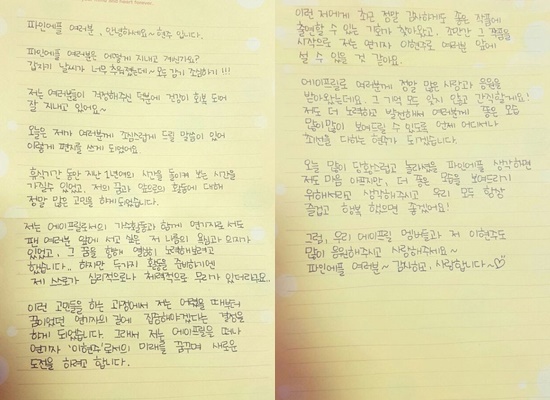 파인에플 여러분, 안녕하세요~ 현주 입니다.
파인에플 여러분은 어떻게 지내고 계신가요?
갑자기 날씨가 너무 추워졌는데~ 모두 감기 조심하기!!!
저는 여러분들이 걱정해주신 덕분에 건강이 회복 되어
잘 지내고 있어요~
오늘은 제가 여러분께 조심스럽게 드릴 말씀이 있어
이렇게 편지를 쓰게 되었어요.
휴식기간 동안 지난 1년여의 시간을 돌이켜 보는 시간을
가질수 있었고, 저의 꿈과 앞으로의 활동에 대해
정말 많은 고민을 하게 되었습니다.
저는 에이프릴로서의 가수활동과 함께 연기자로 서도
팬 여러분 앞에 서고 싶은 저 나름의 욕심과 의지가
있었고, 그 꿈을 향해 열심히 노력해보려고
했습니다.. 하지만 두가지 활동을 준비하기엔
제 스스로가 심리적으로나 체력적으로 무리가 있더라구요..
이런 고민들을 하는 과정에서 저는 어렸을 때부터
꿈이었던 연기자의 길에 집중해야겠다는 결정을
하게 되었습니다. 그래서 저는 에이프릴을 떠나
연기자 '이현주'로서의 미래를 꿈꾸며 새로운
도전을 하려고 합니다.
이런 저에게 최근 정말 감사하게도 좋은 작품에
출연할 수 있는 기회가 찾아왔고, 조만간 그 작품을
시작으로 저는 연기자 이현주로 여러분 앞에
설 수 있을 것 같아요.
에이프릴로 여러분께 정말 많은 사랑과 응원을
받아왔는데요. 그 기억 모두 잊지 않고 간직할게요!
저도 더 노력하고 발전해서 여러분께 좋은 모습
많이많이 보여드릴 수 있도록 언제 어디서나
최선을 다하는 현주가 되겠습니다.
오늘 많이 당황스럽고 놀라셨을 파인에플 생각하면
저도 마음 아프지만, 더 좋은 모습을 보여드리기
위해서라고 생각해주시고 우리 모두 항상
즐겁고 행복 했으면 좋겠어요!
그럼, 우리 에이프릴 멤버들과 저 이현주도
많이 응원해주시고 사랑해주세요~
파인에플 여러분~ 감사하고, 사랑합니다~♡